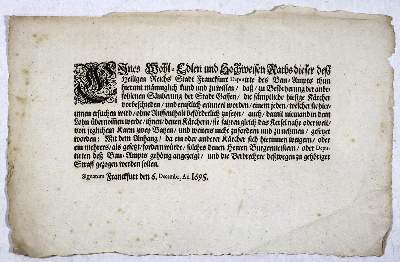 Ines Wohl-Edlen und Hochweisen Raths dieser deß
Heiligen Reichs Stadt Franckfurt Deputirte des Bau-Ampts thun
hiermit männiglich kund und zuwissen / daß / zu Beförderung der anbe-
fohlenen Säuberung der Stadt Gassen / die sämptliche hiesige Kärcher
vorbeschieden / und ernstlich erinnert worden / einem jeden / welcher sie hier-
innen ersuchen wird / ohne Auffenthalt beförderlich zu seyn; auch / damit niemand in dem
Lohn übernommen werde / ihnen / denen Kärchern / sie fahren gleich das Kersel nahe oder weit /
von jeglichem Karrn zwey Batzen / und weiters nicht zu fordern und zu nehmen / gesetzet
worden; Mit dem Anhang / da ein oder anderer Kärcher sich hierinnen wiegern / oder
ein mehrers / als gesetzt / fordern würde / solches denen Herren Burgermeistern / oder Depu-
tirten deß Bau-Ampts gehörig angezeigt / und die Verbrechere deßwegen zu gehöriger
Straff gezogen werden sollen.
Signatum Franckfurt den 6. Decembr. An. 1695.